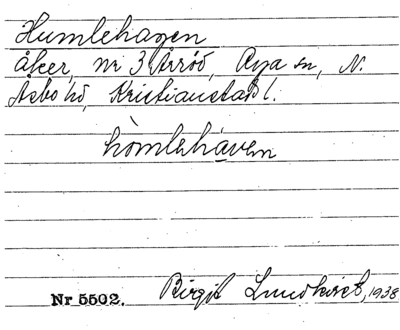 Humlehagen
åker, nr 3 Årröd, Rya sn, N.
Åsbo hd, Kristianstads l.
hòmleháven
Nr 5502. Birgit Lundkvist, 1938